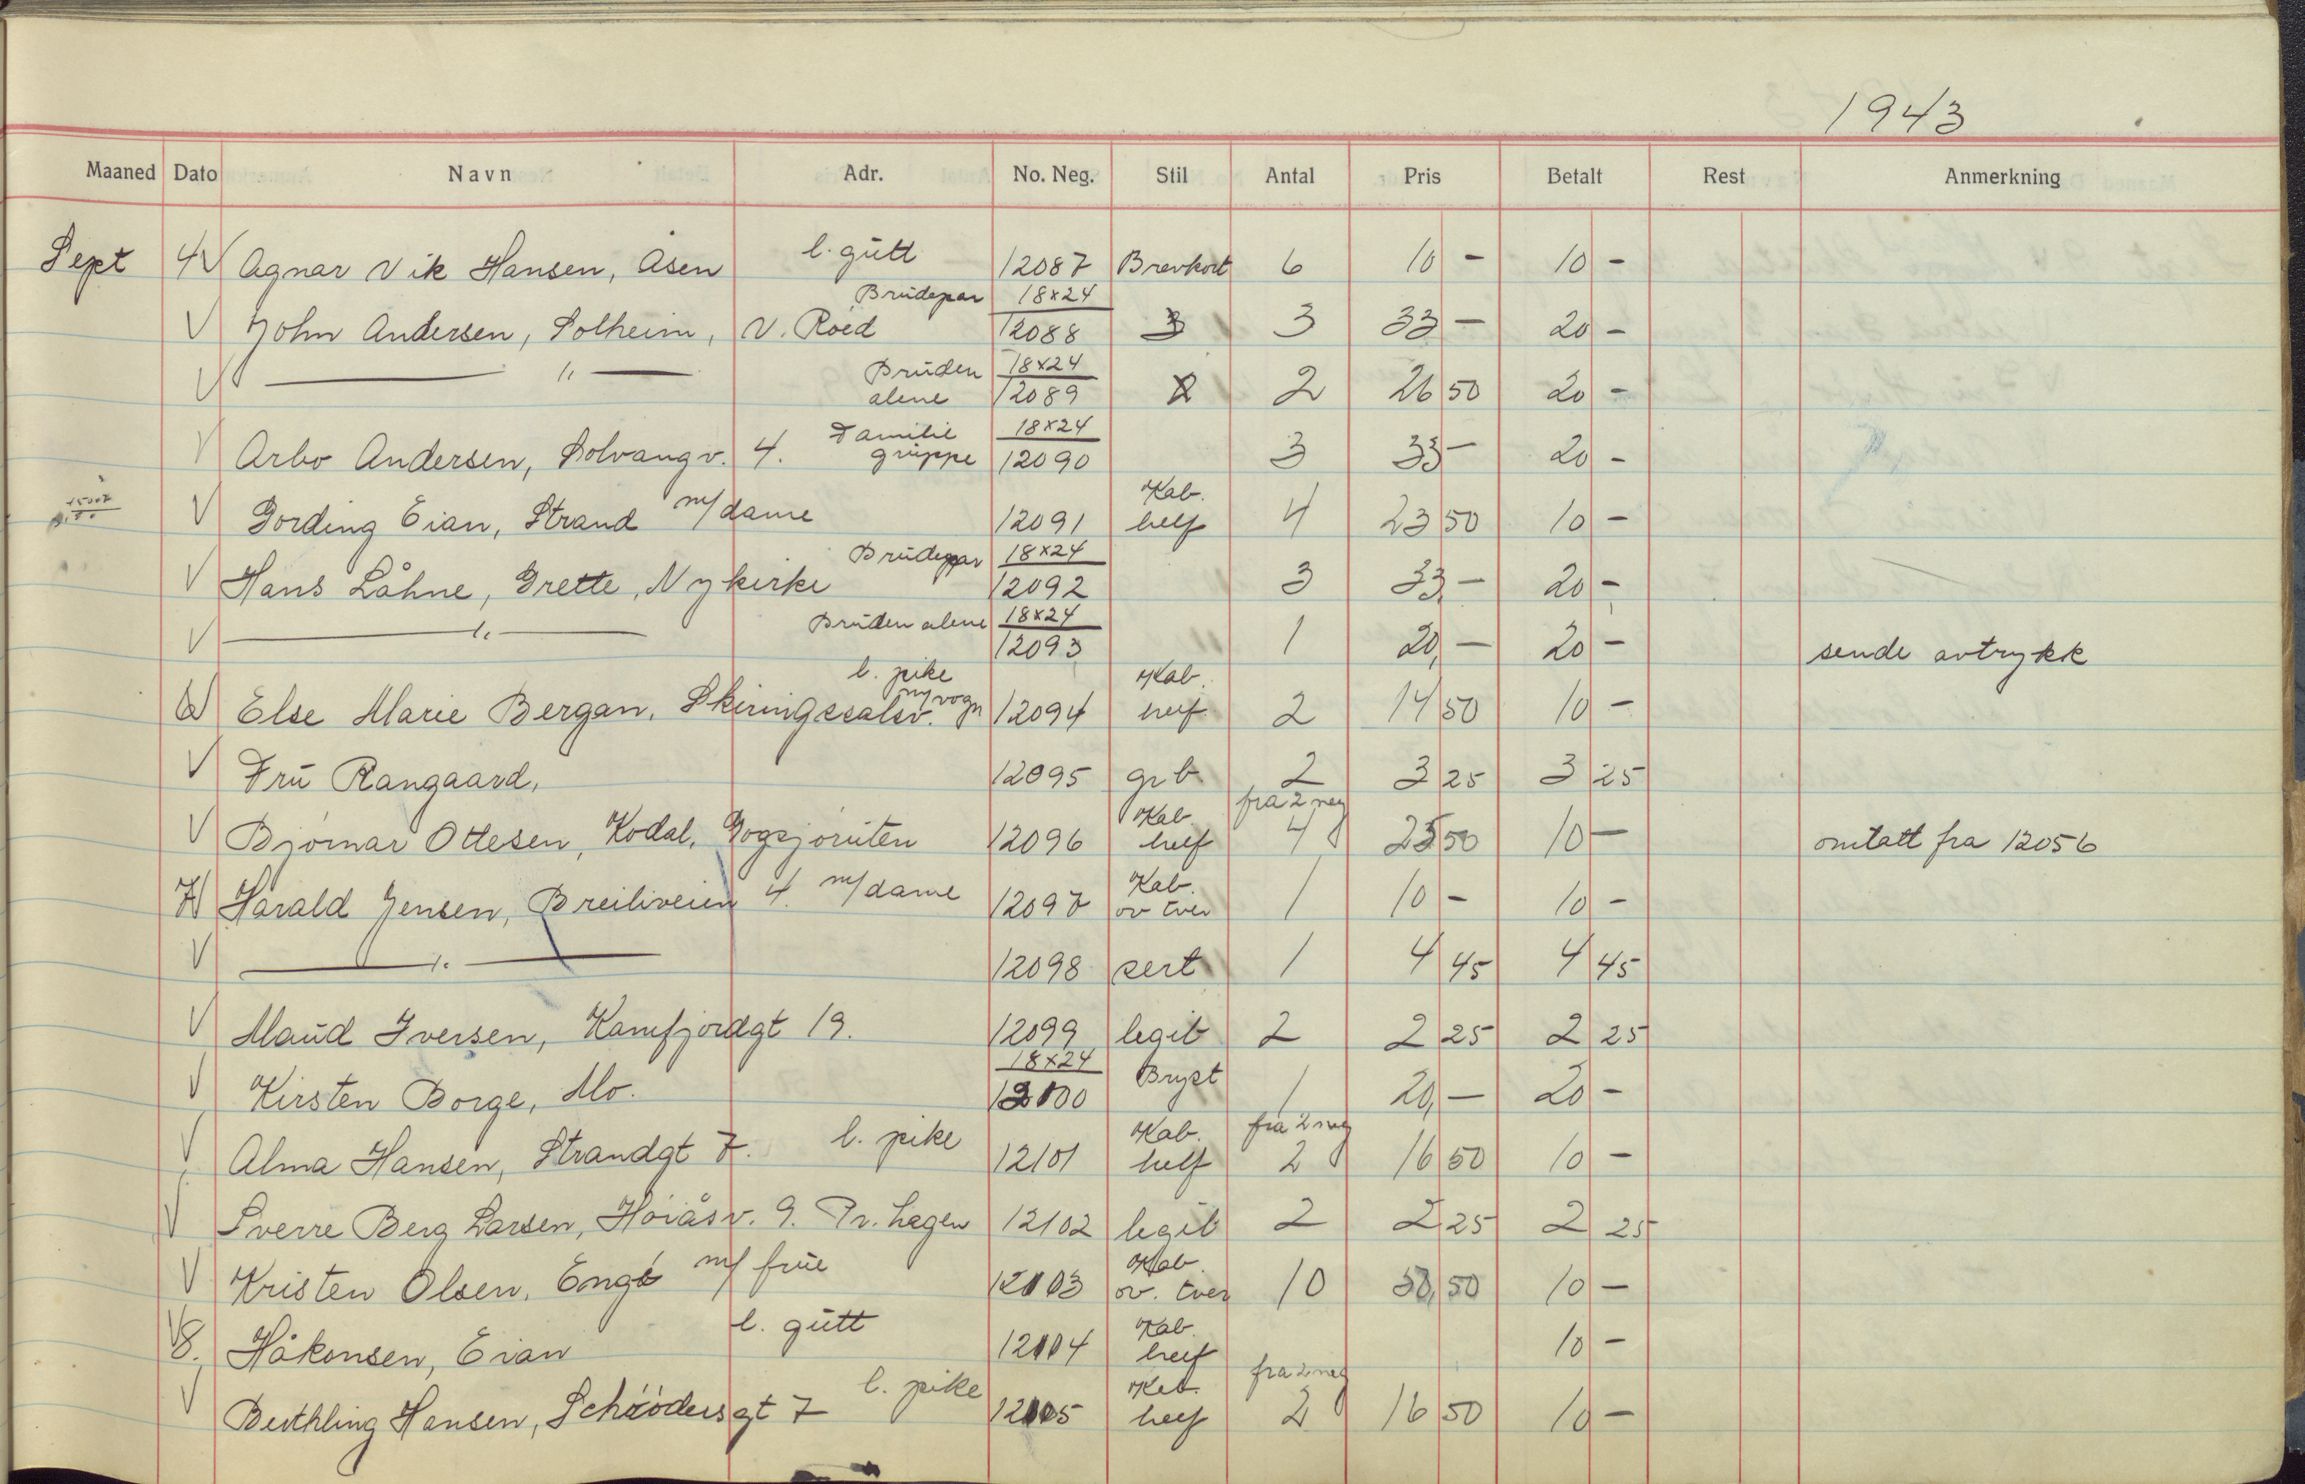 1943
Maaned Dato Navn Adr. No. Neg. Stil Antal Pris Betalt Rest Anmerkning
Sept 4 √ Agnar Vik Hansen, Åsen l. gutt 12087 Brevkort 6 10 - 10 -
√ John Andersen, Solheim, v. Roed Brudepar 18x24 12088 3 33 - 20 -
√ — " — Bruden alene 18x24 12089 2 26 50 20 -
√ Arbo Andersen, Solvangv. 4. Familie gruppe 18x24 12090 3 33 - 20 -
√ Gording Eian, Strand m/dame 12091 Kab. helf 4 23 50 10 -
√ Hans Låhne, Grette, Nykirke Brudepar 18x24 12092 3 33, - 20 -
√ — " — Bruden alene 18x24 12093 1 20, - 20 - sende avtrykk
6 √ Else Marie Bergan, Skiringssalsv. l. pike m/vogn 12094 Kab. helf 2 14 50 10 -
√ Fru Rangaard, 12095 gr b. 2 3 25 3 25
√ Bjørnar Ottesen, Kodal, Gogsjøruten 12096 Kab. helf fra 2 neg 4 23 50 10 - omtatt fra 12056
7 √ Harald Jensen, Breiliveien 4. m/dame 12097 Kab. ov tver 1 10 - 10 -
√ — " — 12098 sert 1 4 45 4 45
√ Maud Iversen, Kamfjordgt 19. 12099 legit 2 2 25 2 25
√ Kirsten Borge, Mo. 18x24 12100 Bryst 1 20, - 20 -
√ Alma Hansen, Strandgt 7. l. pike 12101 Kab. helf fra 2 neg 2 16 50 10 -
√ Sverre Berg Larsen, Høiåsv. 9. Pr. hagen 12102 legit 2 2 25 2 25
√ Kristen Olsen, Engø m/ frue 12103 Kab. ov. tver 10 50 10 -
√ 8. Håkonsen, Eian l. gutt 12104 Kab. helf 10 -
√ Berthling Hansen, Schrödersgt 7 l. pike 12105 Kab. helf fra 2 neg 2 16 50 10 -